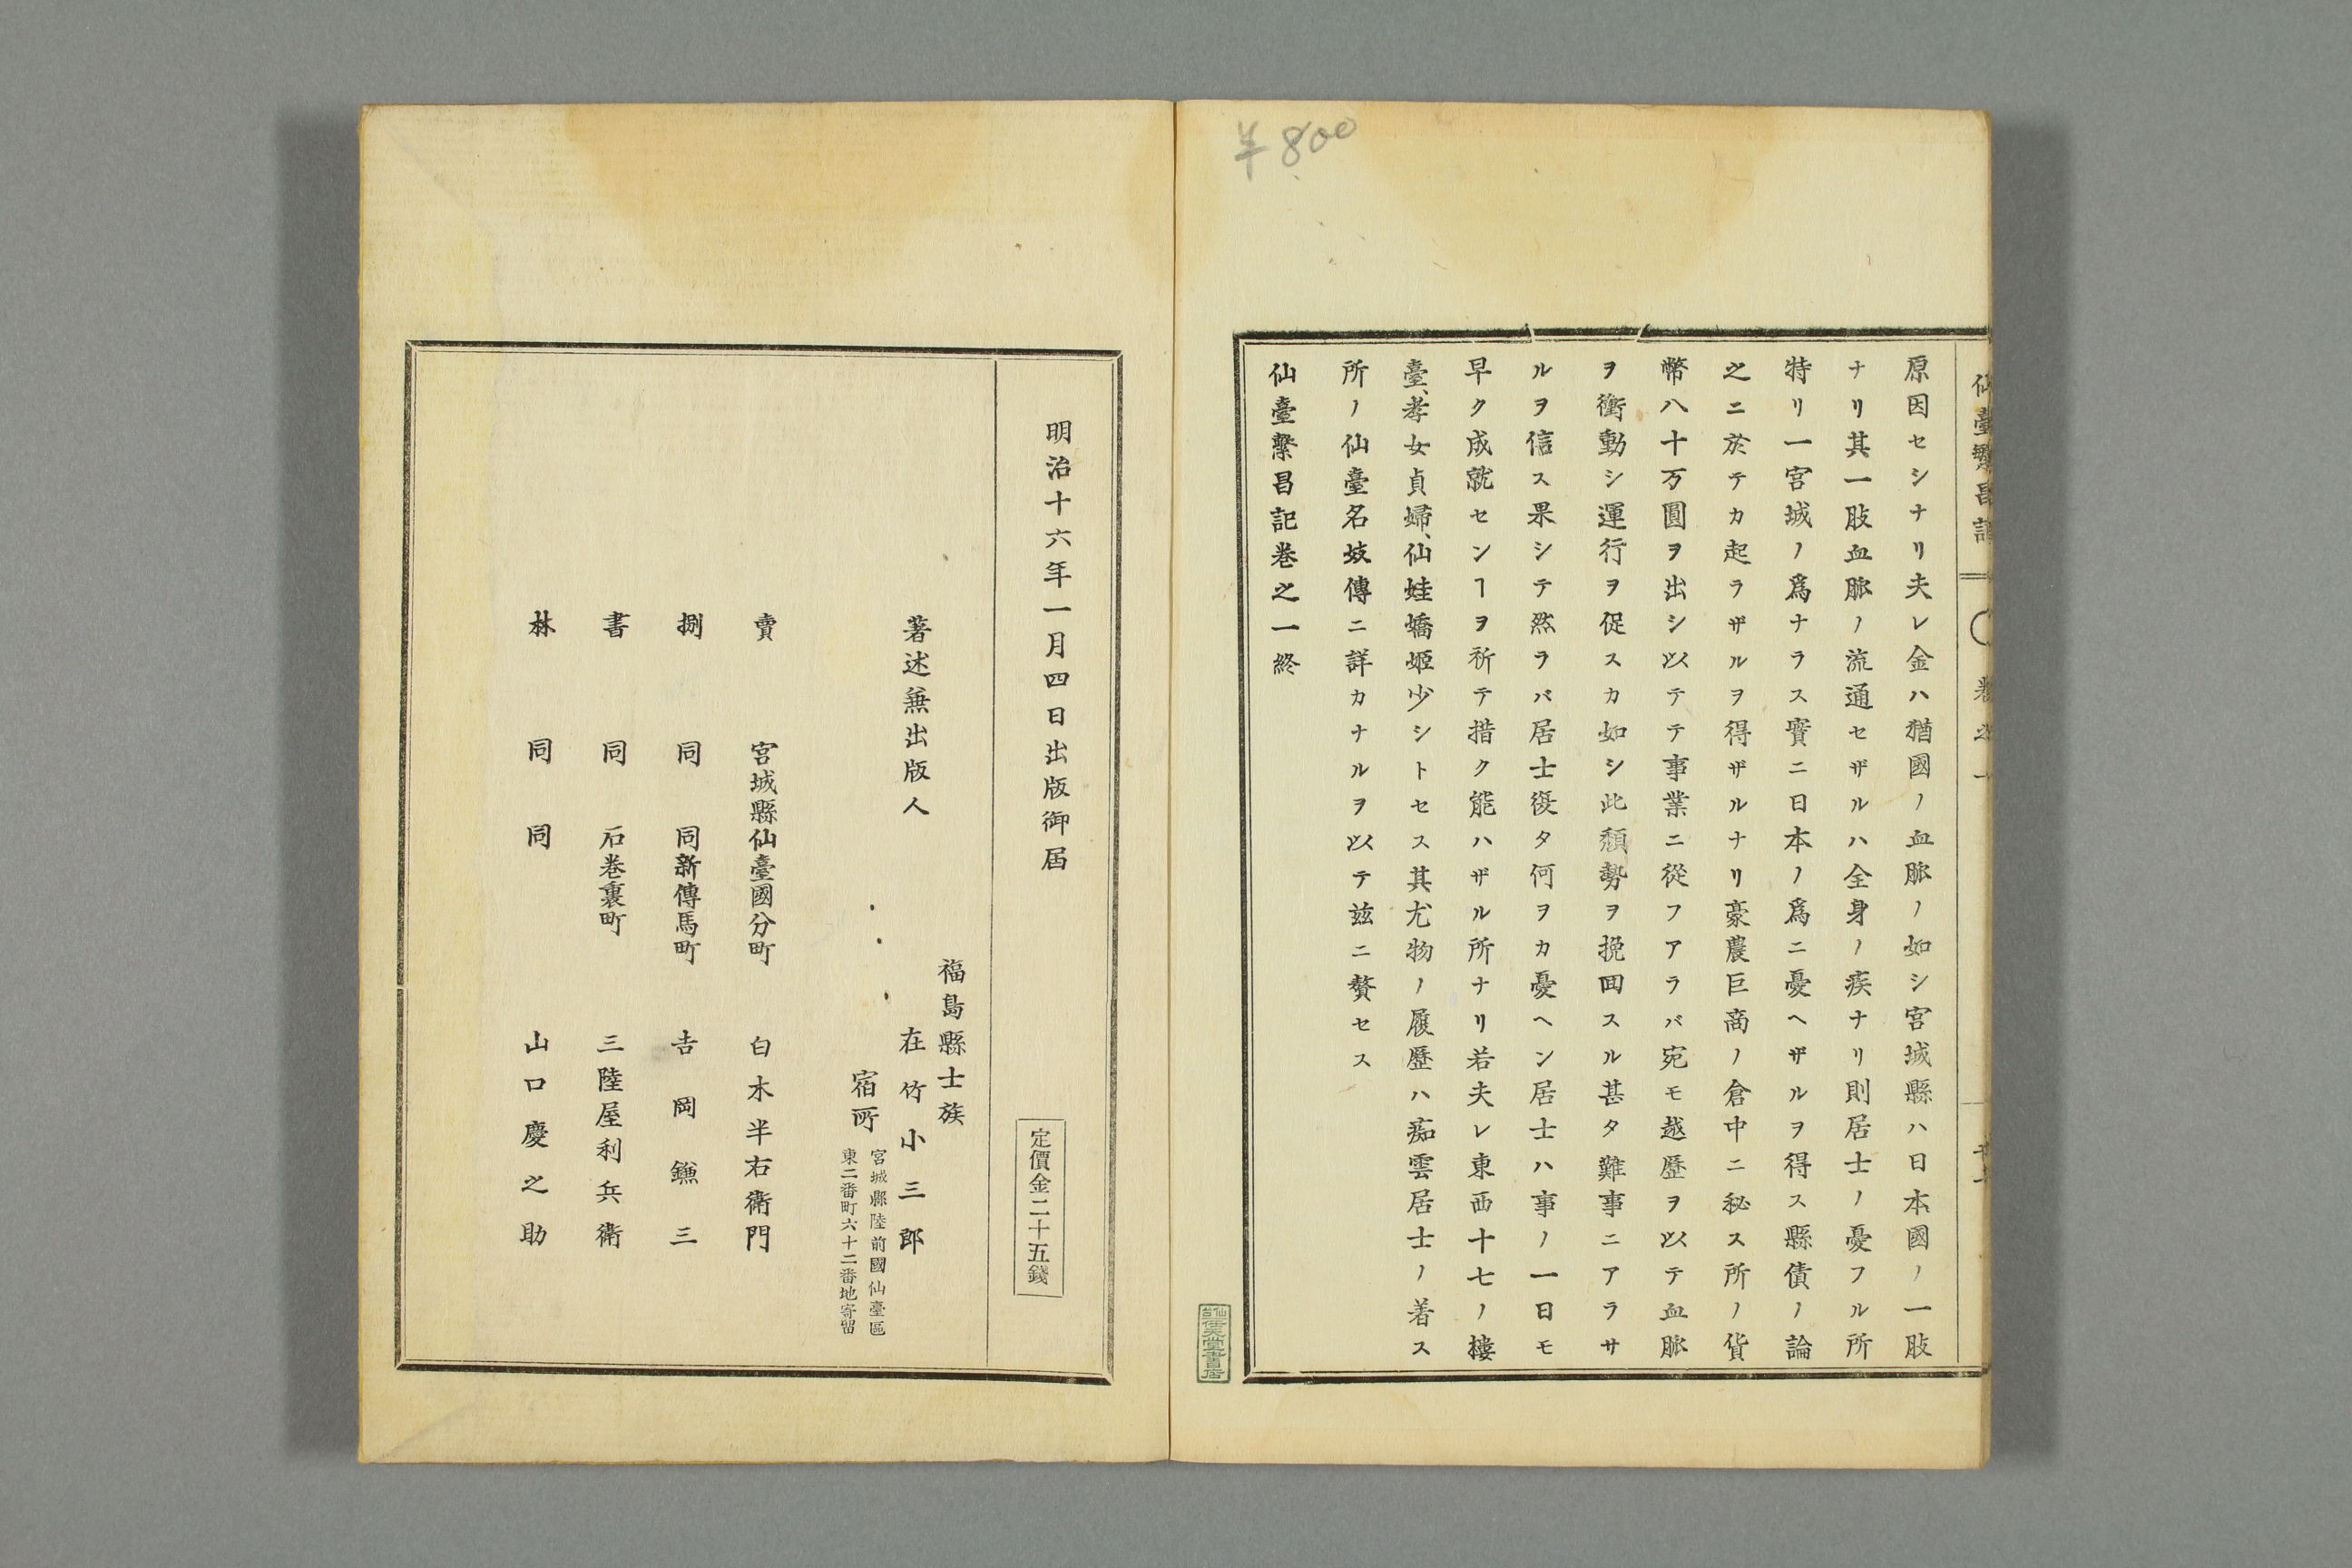 ¥800
仙臺繁昌記 〇 卷之一
原因セシナリ夫レ金ハ猶國ノ血脈ノ如シ宮城縣ハ日本國ノ一肢
ナリ其一肢血脈ノ流通セザルハ全身ノ疾ナリ則居士ノ憂フル所
特リ一宮城ノ爲ナラス實ニ日本ノ爲ニ憂ヘザルヲ得ス縣債ノ論
之ニ於テカ起ラザルヲ得ザルナリ豪農巨商ノ倉中ニ秘ス所ノ貨
幣八十万圓ヲ出シ以テテ事業ニ從フアラバ宛モ越歷ヲ以テ血脈
ヲ衝動シ運行ヲ促スカ如シ此頽勢ヲ挽回スル甚タ難事ニアラサ
ルヲ信ス果シテ然ラバ居士復タ何ヲカ憂ヘン居士ハ事ノ一日モ
早ク成就センヿヲ祈テ措ク能ハザル所ナリ若夫レ東西十七ノ樓
臺、孝女貞婦、仙娃嬌姬少シトセス其尤物ノ履歷ハ痴雲居士ノ着ス
所ノ仙臺名妓傳ニ詳カナルヲ以テ茲ニ贅セス
仙臺繁昌記卷之一終
仙台
任天堂書店
明治十六年一月四日出版御届
定價金二十五錢
福島縣士族
著述兼出版人 在竹小三郎
宿所 宮城縣陸前國仙臺區
東二番町六十二番地寄留
賣 宮城縣仙臺國分町 白木半右衛門
捌 同 同新傳馬町 吉岡鐮三
書 同 石卷裏町 三陸屋利兵衛
林 同 同 山口慶之助